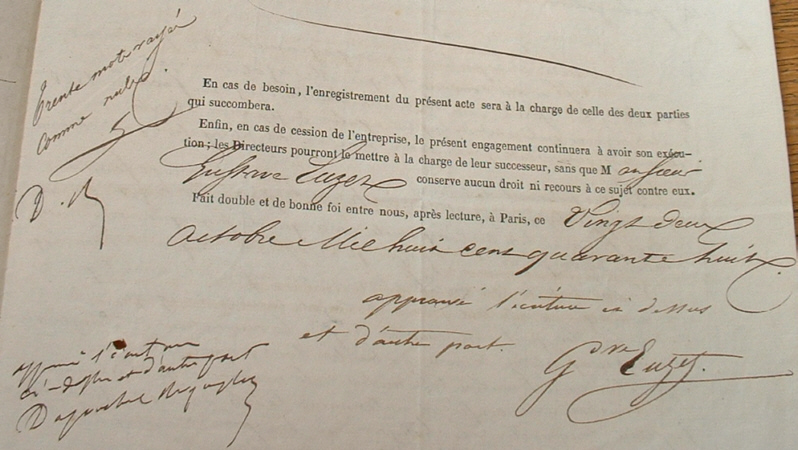 trente mots rayés
comme nuls.
D. R
En cas de besoin, l'enregistrement du présent acte sera à la charge de celle des deux parties
qui succombera.
Enfin, en cas de cession de l'entreprise, le présent engagement continuera à avoir son exécu-
tion; les Directeurs pourront le mettre à la charge de leur successeur, sans que M onsieur
Gustave Euzet conserve aucun droit ni recours à ce sujet contre eux.
Fait double et de bonne foi entre nous, après lecture, à Paris, ce Vingt deux
Octobre Mil huit cent quarante huit.
approuvé l'écriture ci dessus
et d'autre part.
Gve Euzet.
approuvé l'écriture
ci-dessus et d'autre part